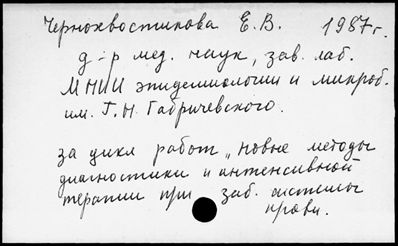 Чернохвостикова Е.В. 1987г.
д-р мед. наук, зав. лаб.
МНИИ эпидемиологии и микроб.
им. Г.Н. Габричевского.
за цикл работ „Новые методы
диагностики и интенсивной
терапии при заб. системы
крови.